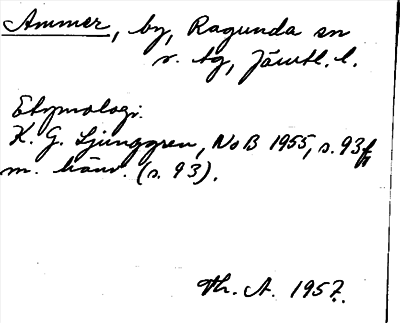 Ammer, by, Ragunda sn
r. tg, Jämtl. l.
Etymologi.
K. G. Ljunggren, NoB 1955, s. 93 f,
m. hänv. (s. 93).
Th. A. 1957.